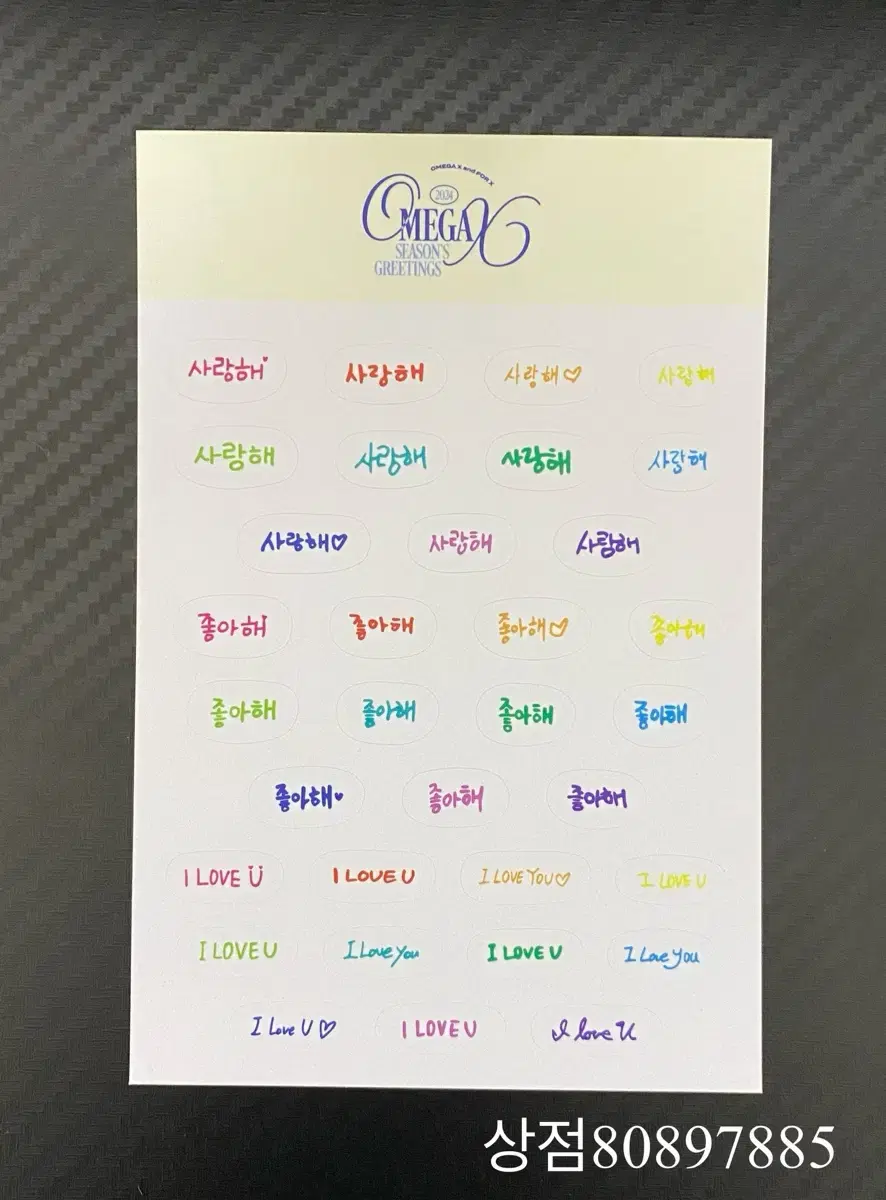 OMEGA X and FOR X
2024
OMEGA X
SEASON'S
GREETINGS
사랑해 사랑해 사랑해♡ 사랑해
사랑해 사랑해 사랑해 사랑해
사랑해♡ 사랑해 사랑해
좋아해 좋아해 좋아해♡ 좋아해
좋아해 좋아해 좋아해 좋아해
좋아해♥ 좋아해 좋아해
I LOVE U I LOVE U I LOVE YOU♡ I LOVE U
I LOVE U I Love you I LOVE U I Love you
I Love U♡ I LOVE U I love U
상점80897885